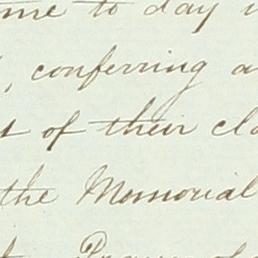 me to day
, conferring a
of their cla
the Memorial